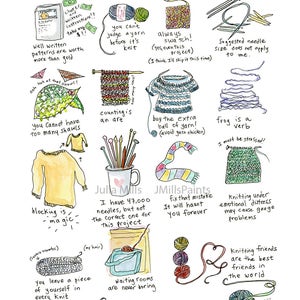 well written
patterns are worth
more than gold
you can't
judge a yarn
before it's
knit
always
swatch!
(yes, even this
project)
(I think I'll skip it this time)
Suggested needle
size does not apply
to me.
you cannot have
too many shawls
counting is
an art
buy the extra
ball of yarn!
(avoid yarn chicken)
frog is a
verb
blocking is
- magic -
I have 47,000
needles, but not
the correct one for
this project
fix that mistake
it will haunt
you forever
I must be stressed!
Knitting under
emotional distress
may cause gauge
problems
Julia Mills
JMillsPaints
(my hair)
you leave a piece
of yourself in
every knit
waiting rooms
are never boring
Knitting friends
are the best
friends in
the world